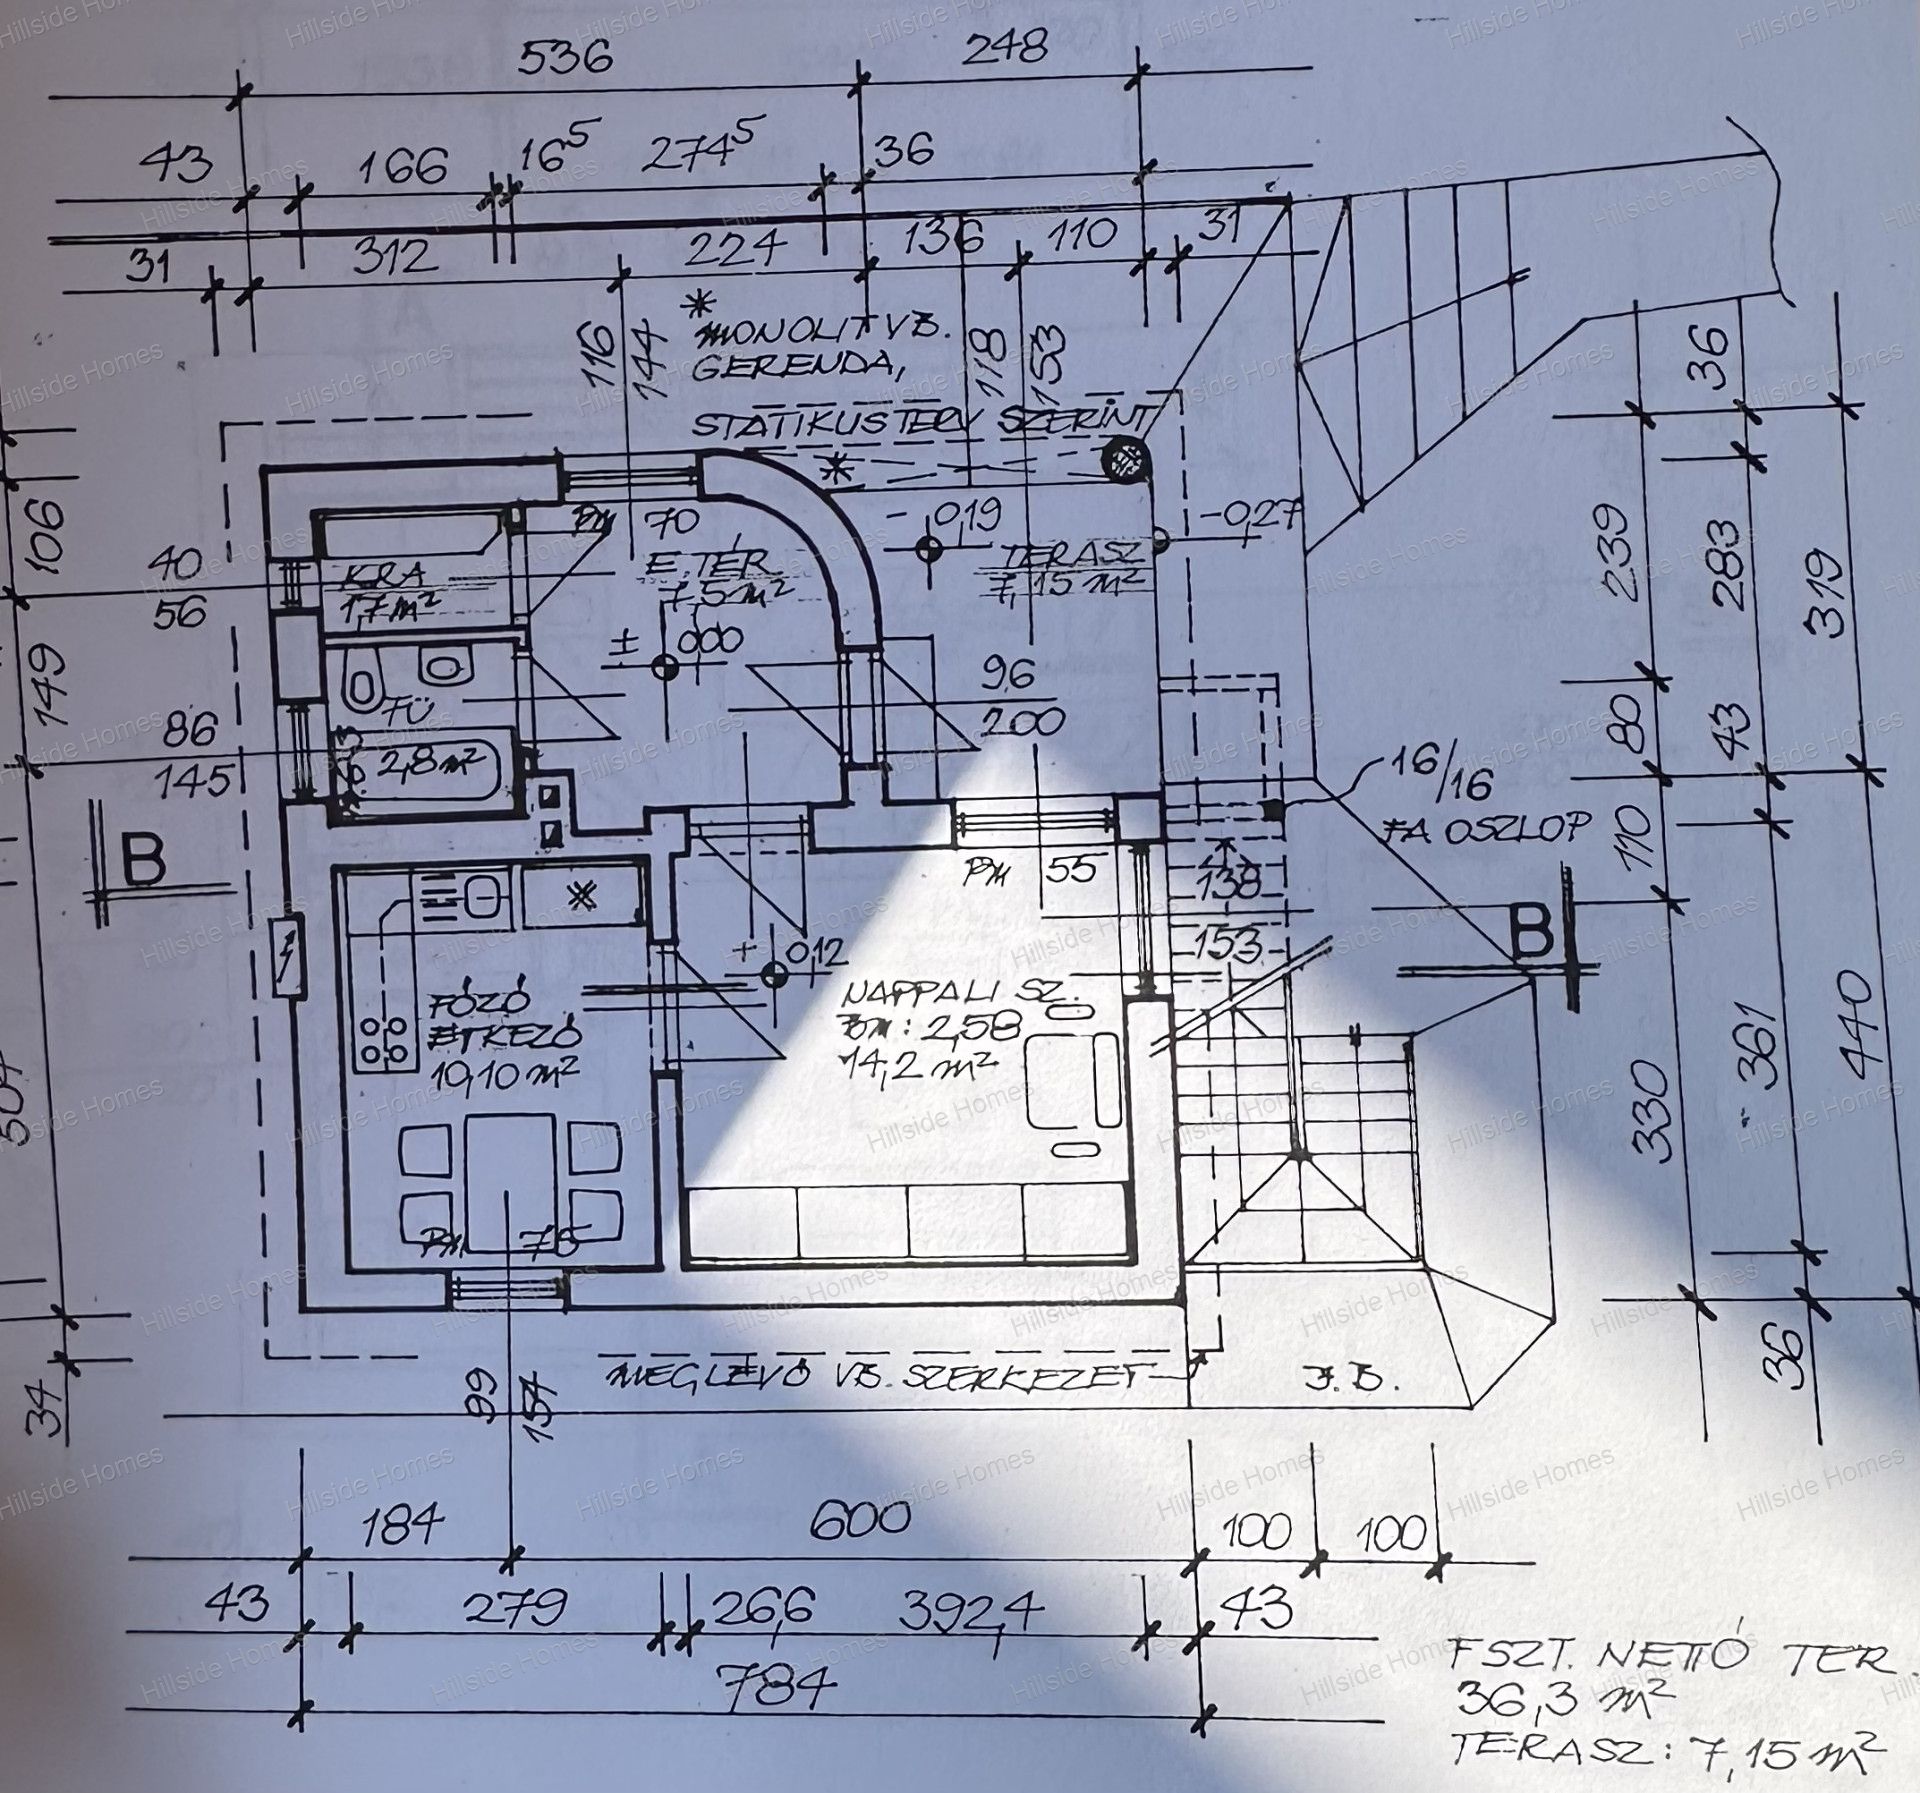 536 248
43 166 16⁵ 274⁵ 36
31 312 224 136 110 31
116
144
118
153
*
MONOLIT VB.
GERENDA,
STATIKUS TERV SZERINT
*
36
PM 70
-0,19
-0,27
106
40
56
KRA
1,7 m²
E. TÉR
7,5 m²
TERASZ
7,15 m²
239
283
319
± 0,00
149
86
145
FÜ
2,8 m²
96
200
80
43
16/16
FA OSZLOP
B
PM 55
138
153
110
B
+ 0,12
FŐZŐ
ÉTKEZŐ
10,10 m²
NAPPALI SZ.
BM: 2,58
14,2 m²
330
361
440
PM 75
34
99
154
MEGLÉVŐ VB. SZERKEZET
J.B.
36
184 600 100 100
43 279 26,6 392,4 43
784
FSZT. NETTÓ TER.
36,3 m²
TERASZ: 7,15 m²
Hillside Homes